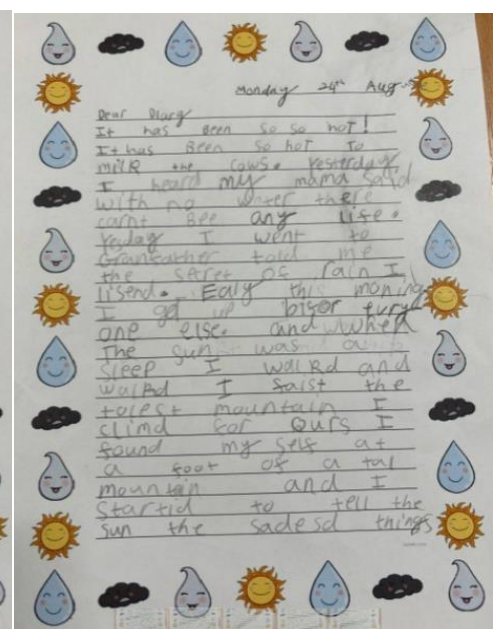 Monday 24th Aug
Dear Diary
It has Been so so hot!
It has Been so hot to
milk the cows. Yesterday
I heard my mama said
with no water there
carnt Bee any life.
Yesday I went to
Granfather told me
the secret of rain I
lisend. Ealy this moning
I got up bifor evry
one else. and
The sun was a
sleep I walkd and
walkd I faist the
tolest mountain I
climd for ours I
found my self at
a foot of a tal
mountain and I
startid to tell the
sun the sadesd things